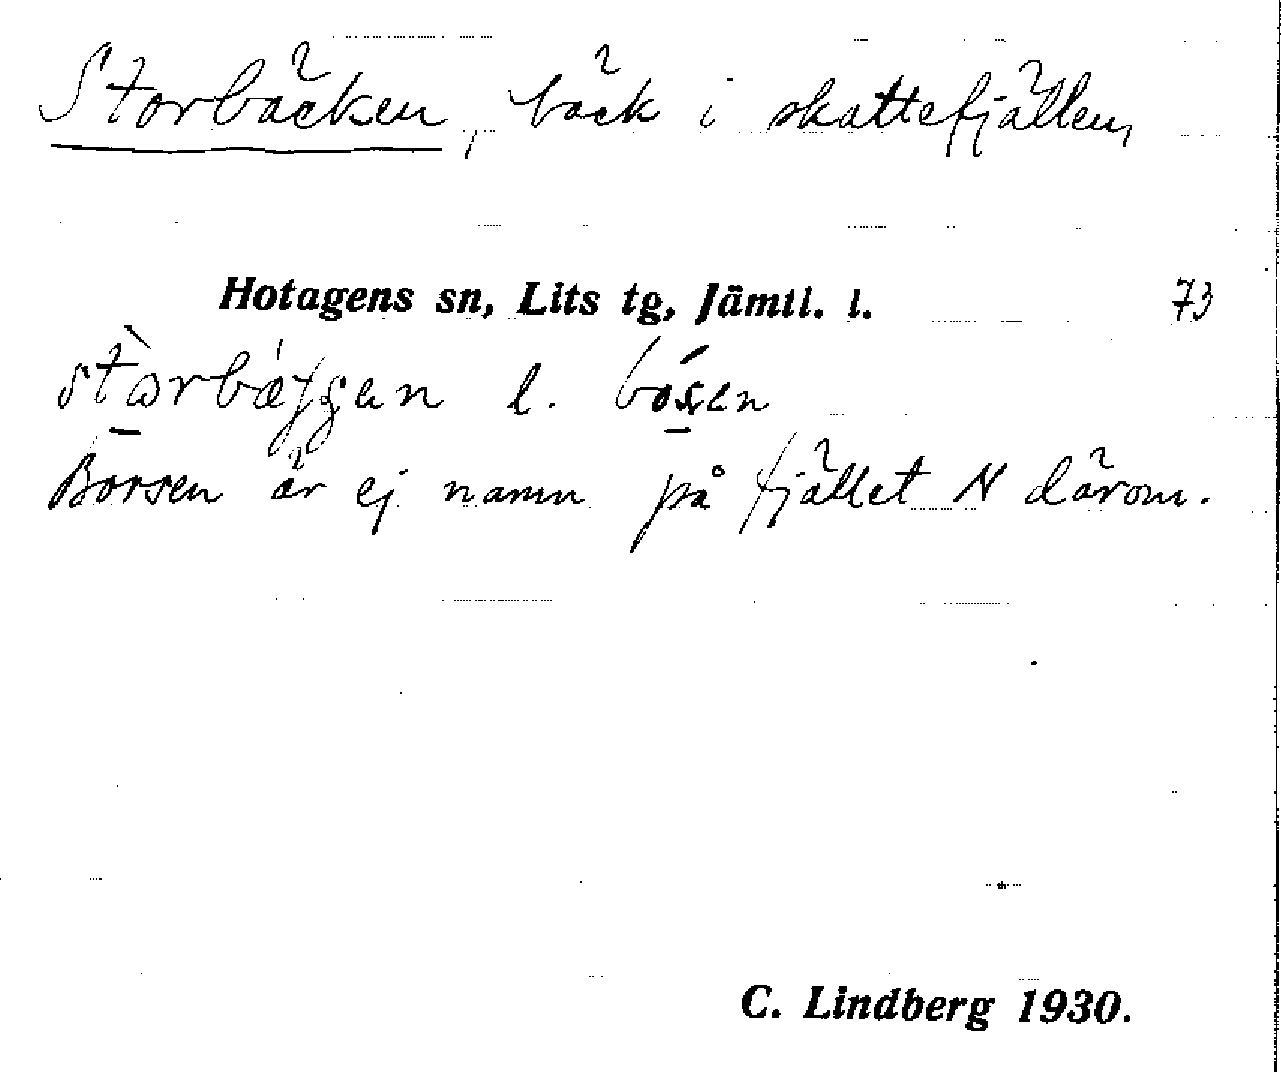 Storbäcken, bäck i skattefjällen,
Hotagens sn, Lits tg, Jämtl. l. 73
l.
Borsen är ej namn på fjället N därom.
C. Lindberg 1930.